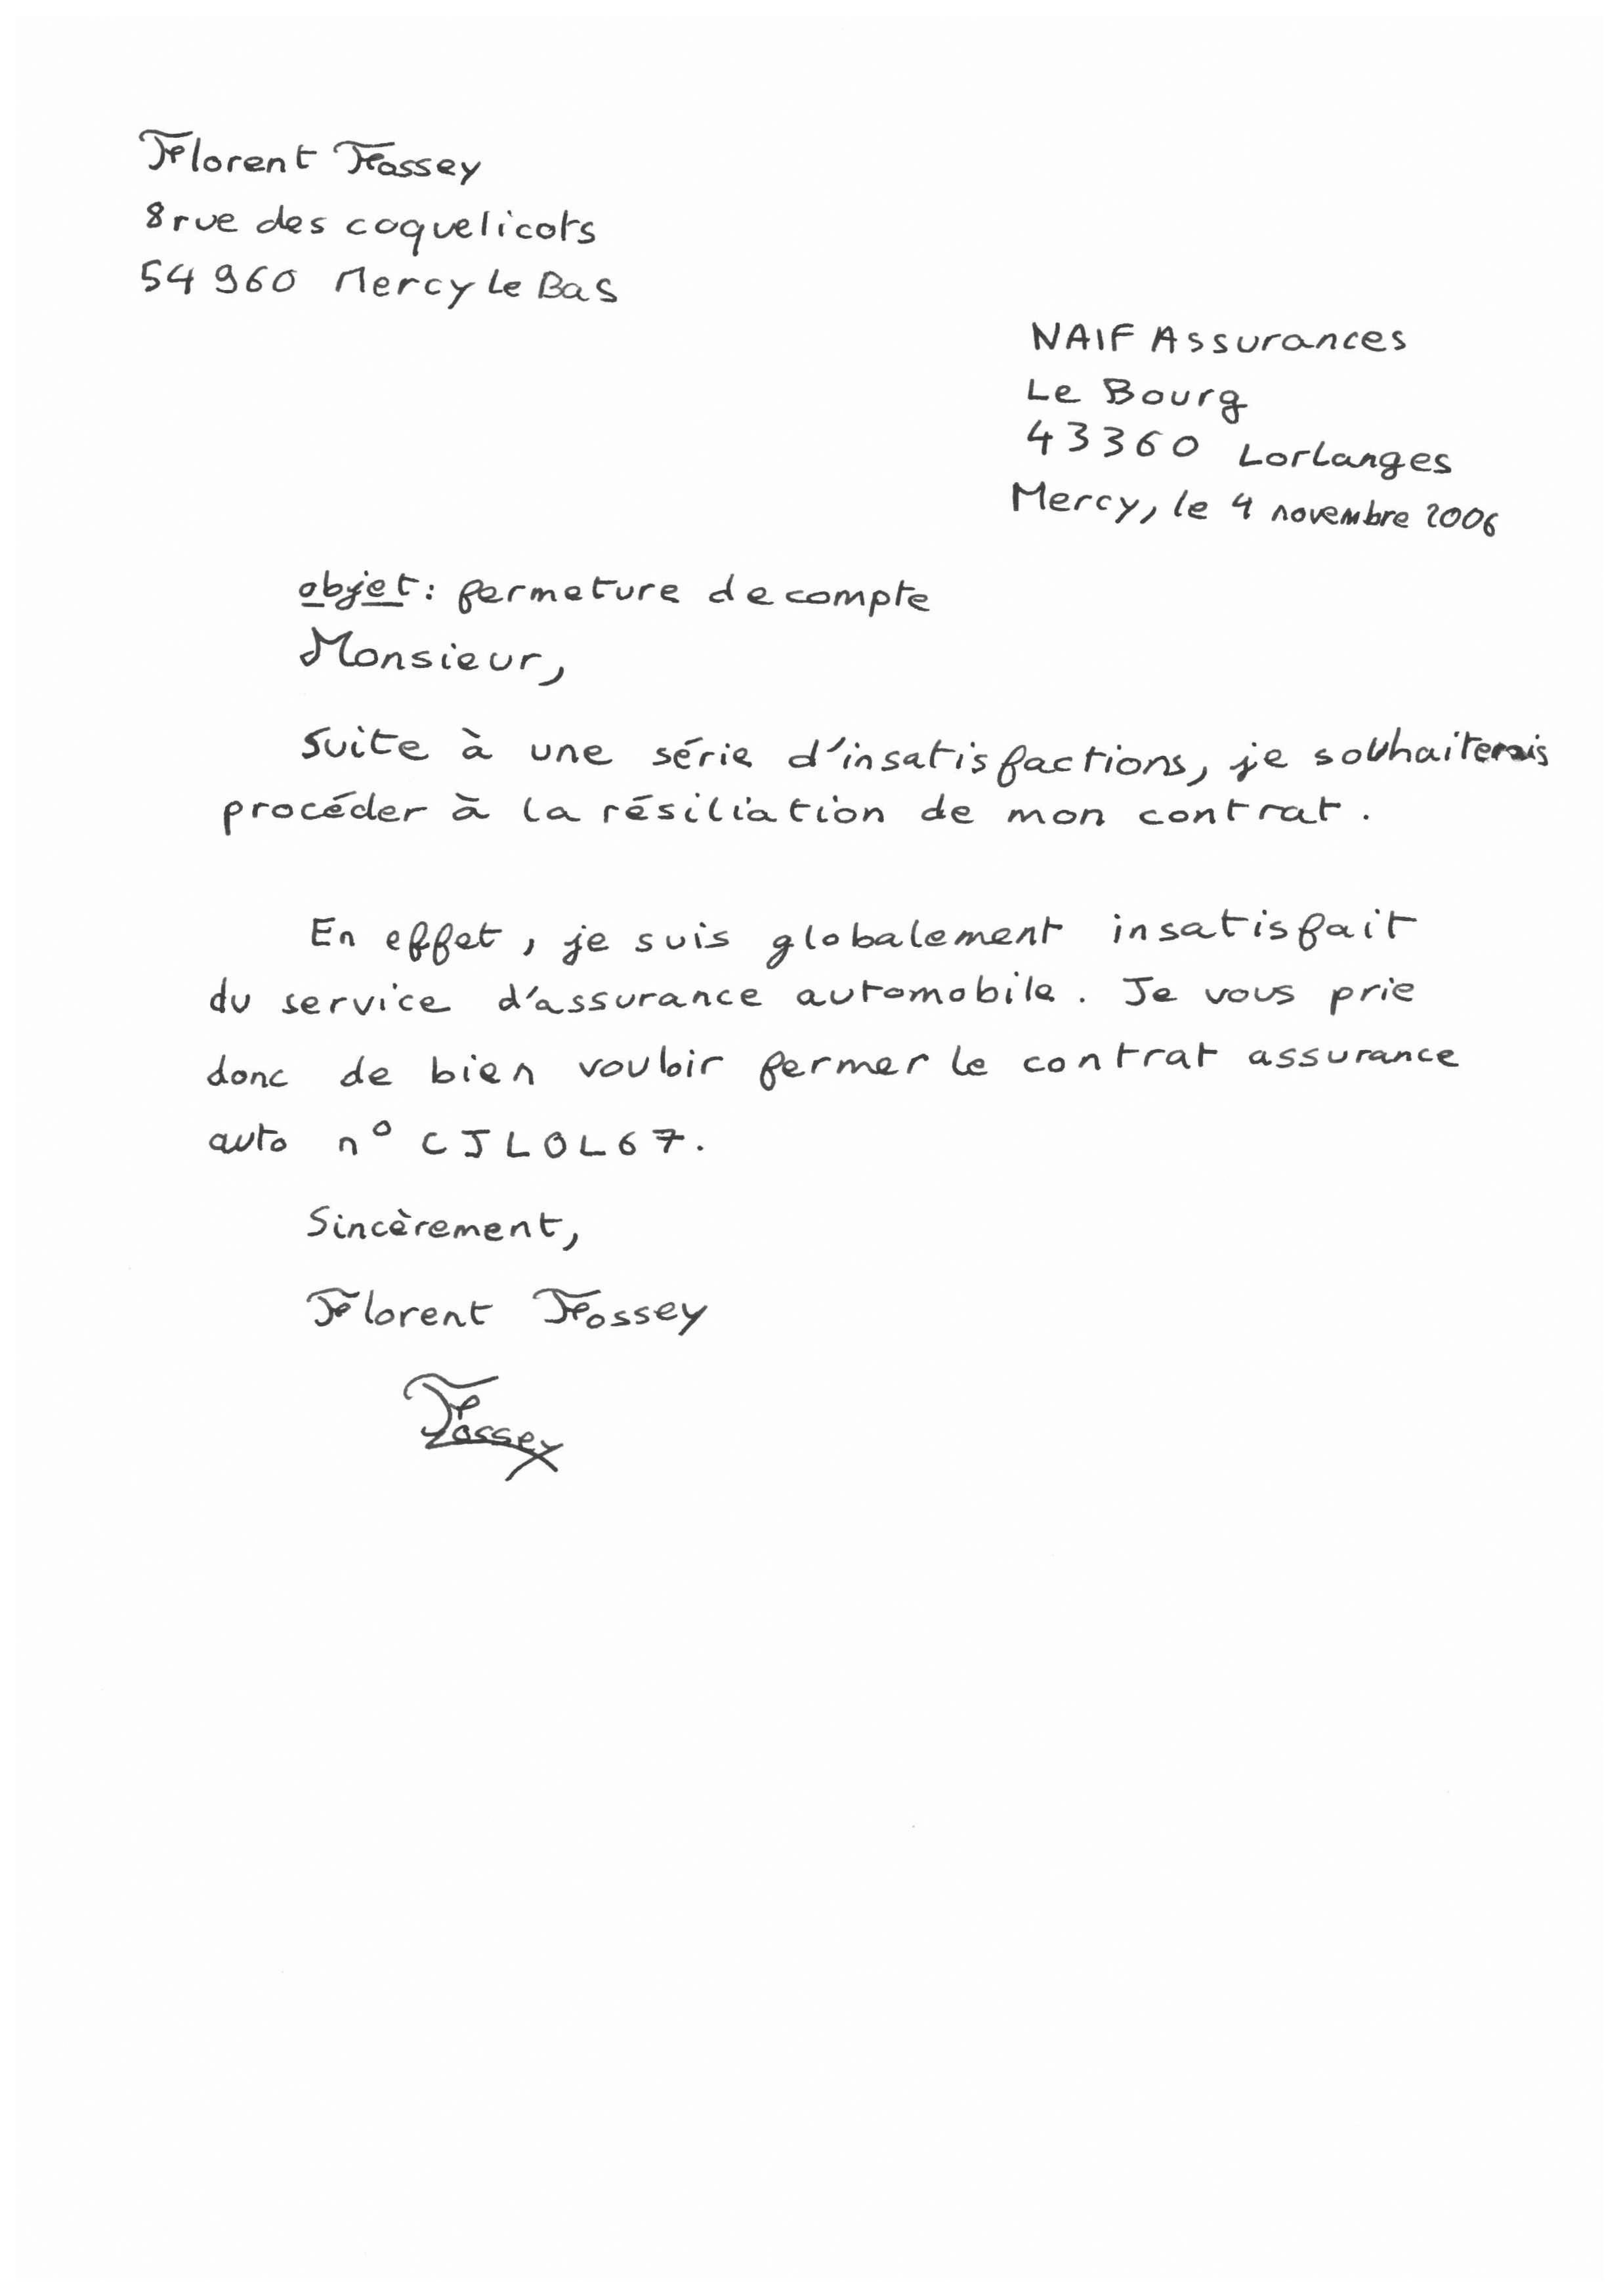 Florent Fossey
8 rue des coquelicots
54 960 Mercy Le Bas
NAIF Assurances
Le Bourg
43360 Lorlanges
Mercy, le 4 novembre 2006
objet : fermeture de compte
Monsieur,
Suite à une série d'insatisfactions, je souhaiterais
procéder à la résiliation de mon contrat.
En effet, je suis globalement insatisfait
du service d'assurance automobile. Je vous prie
donc de bien vouloir fermer le contrat assurance
auto n° CJLOL67.
Sincèrement,
Florent Fossey
Fossey